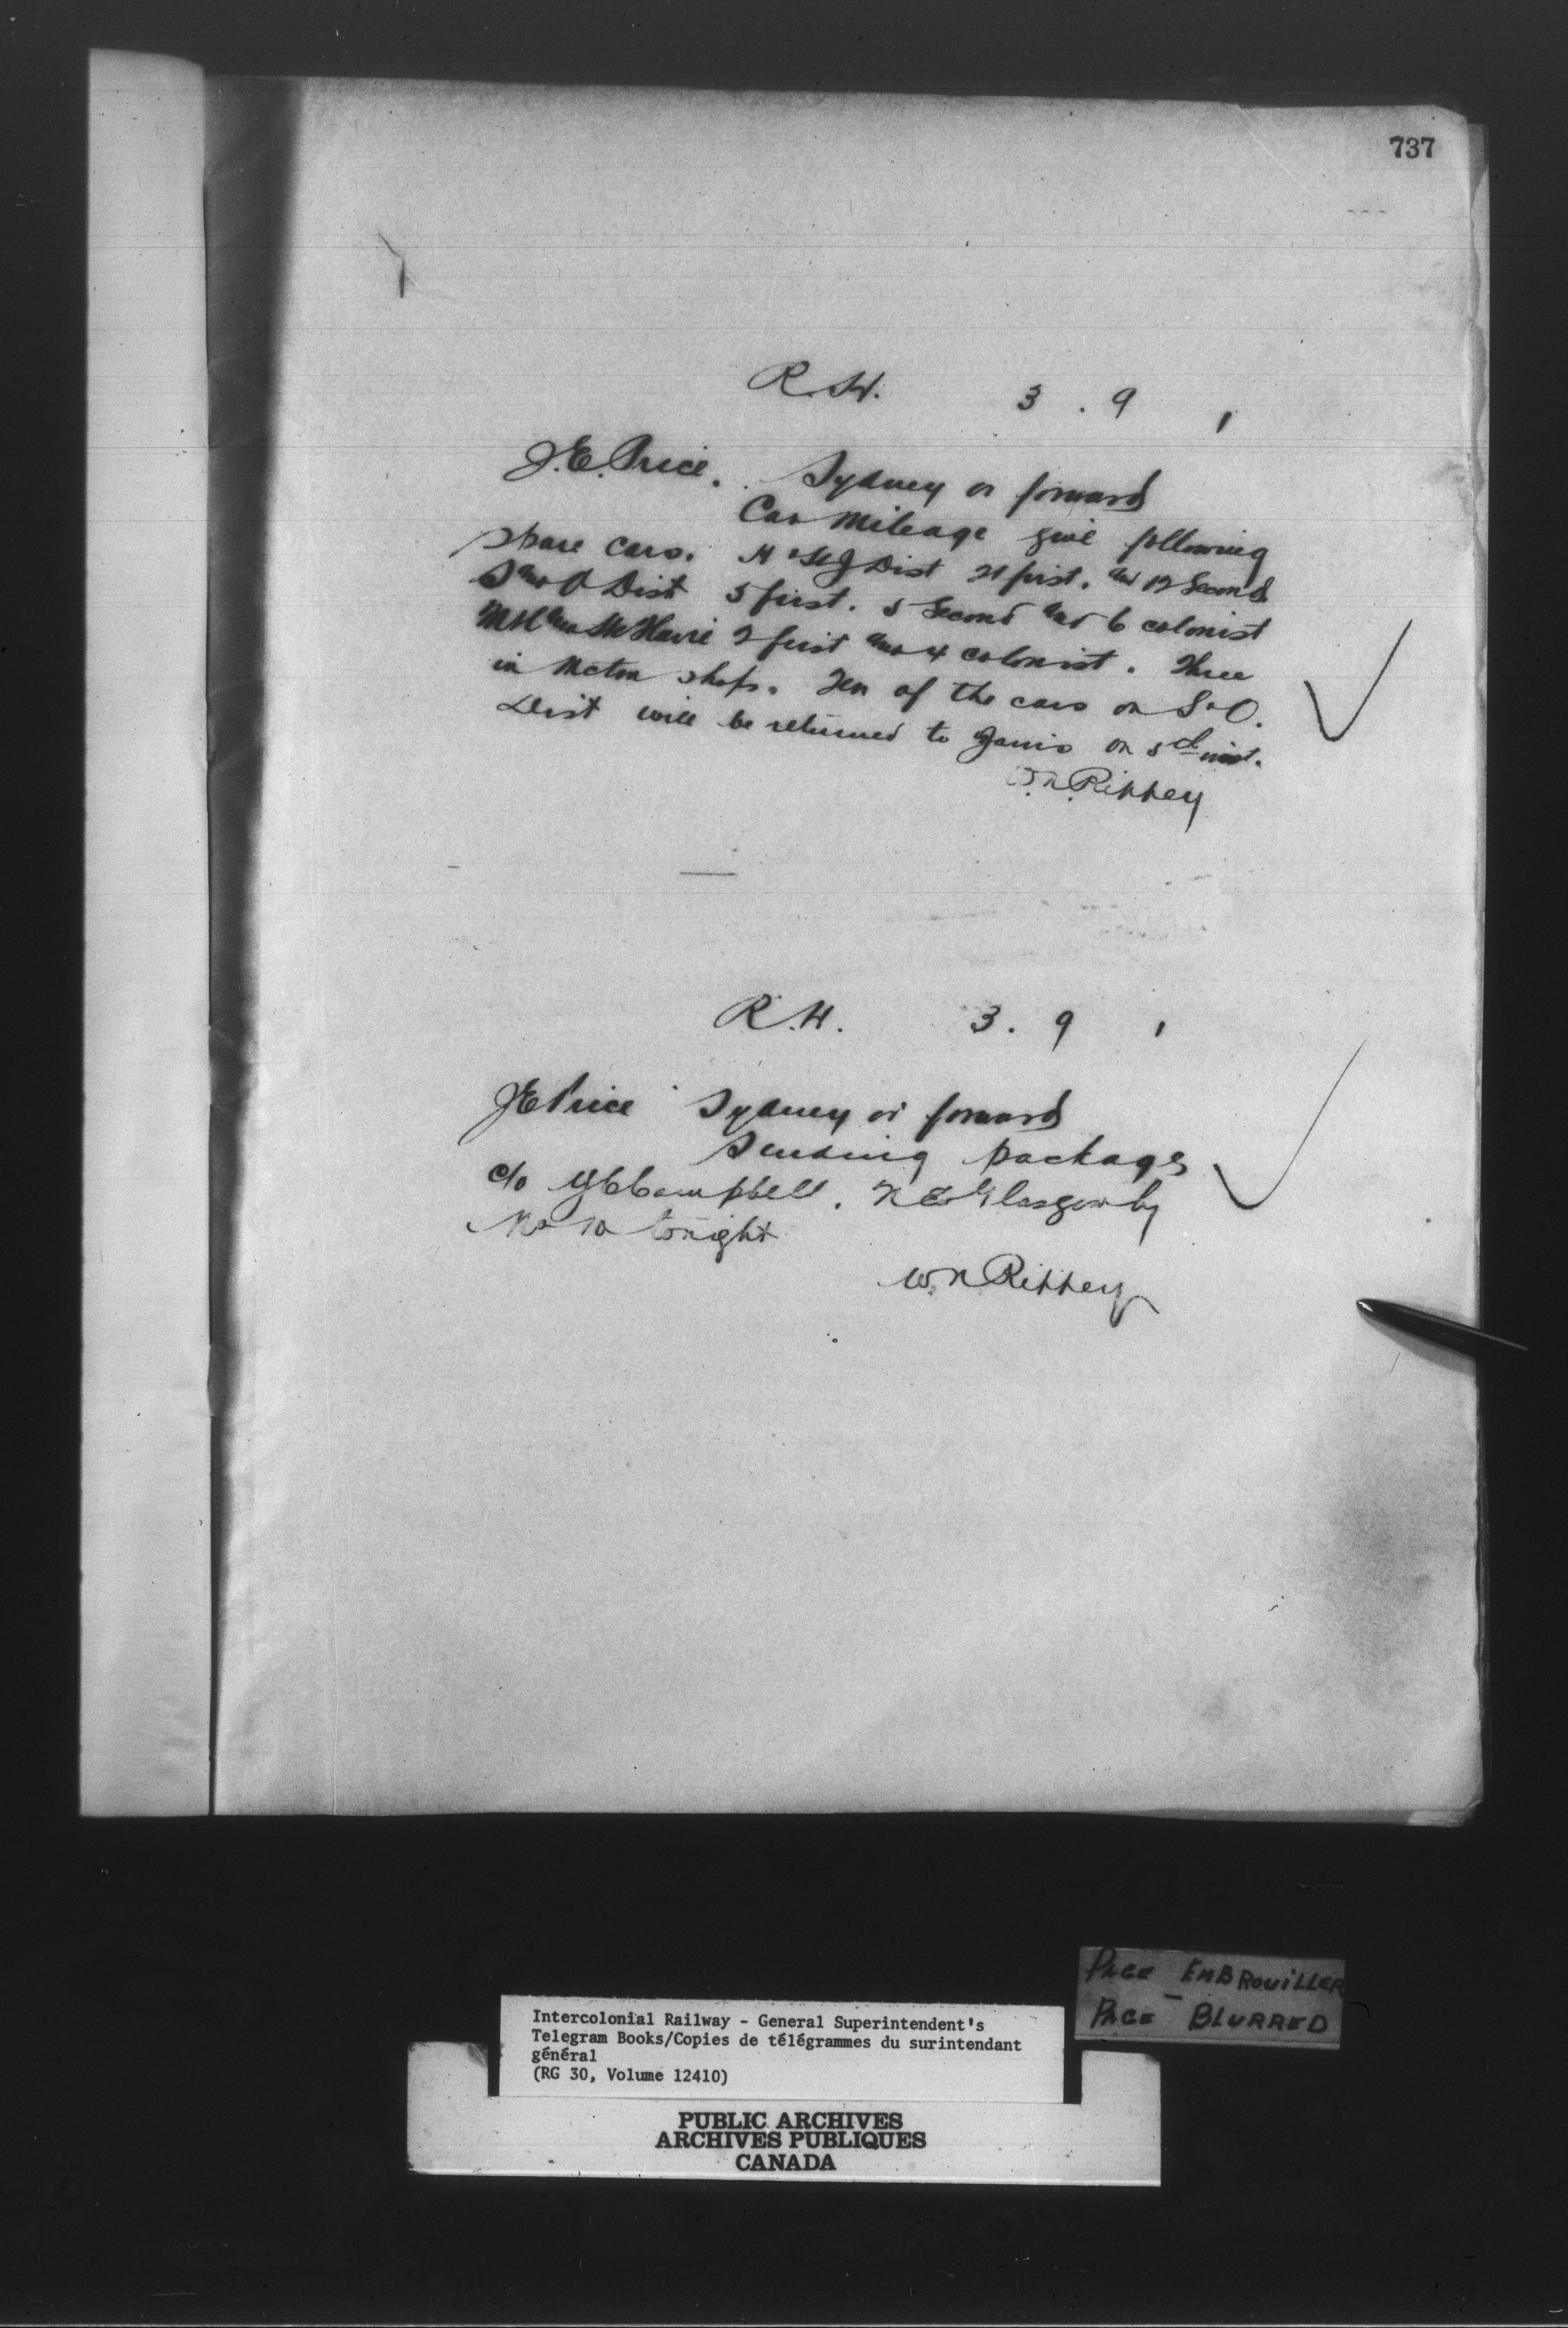 737
R.H. 3. 9 1
J.E. Price. Sydney or forward
Car Mileage give following
spare cars. H & St J Dist 21 first. and 12 Second
S and O Dist 5 first. 5 Second and 6 colonist
and 4 colonist. Three
in Mcton shops. Ten of the cars on S & O.
Dist will be returned to on inst.
W.N. Rippey
R.H. 3. 9 1
JE Price Sydney or forward
Sending package
c/o Campbell. N Glasgow by
No 10 tonight
W.N Rippey
PAGE EMBROUILLER
PAGE BLURRED
Intercolonial Railway - General Superintendent's
Telegram Books/Copies de télégrammes du surintendant
général
(RG 30, Volume 12410)
PUBLIC ARCHIVES
ARCHIVES PUBLIQUES
CANADA